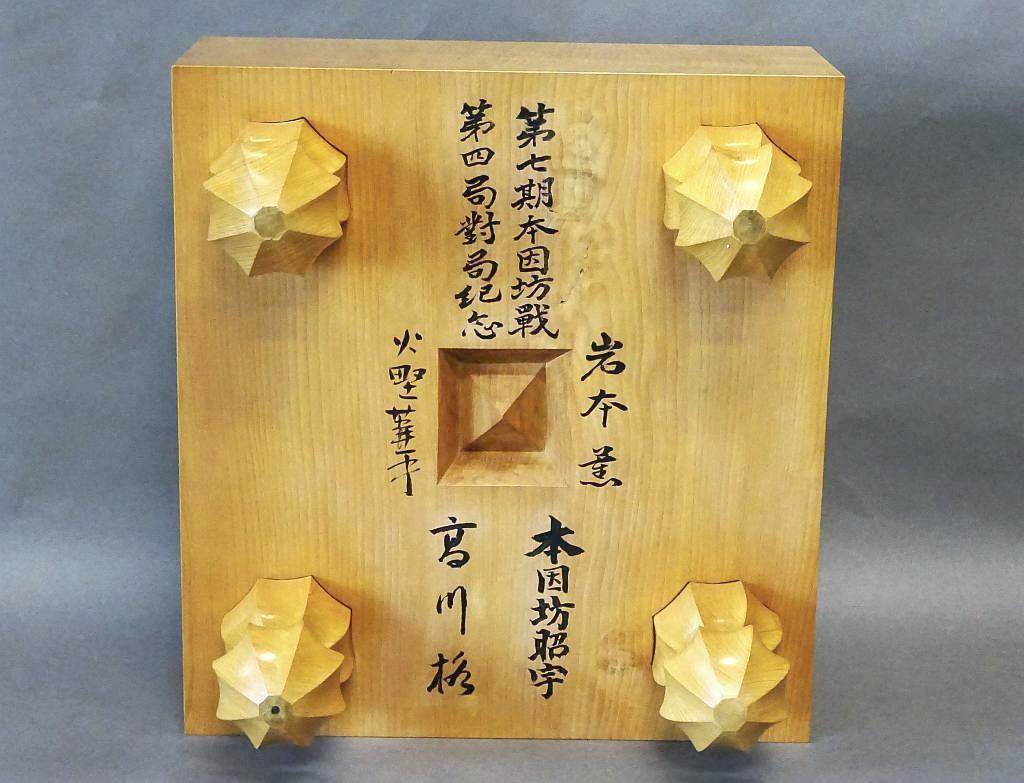 第七期本因坊戰
第四局對局紀念
岩本薫
火野葦平
本因坊昭宇
高川格